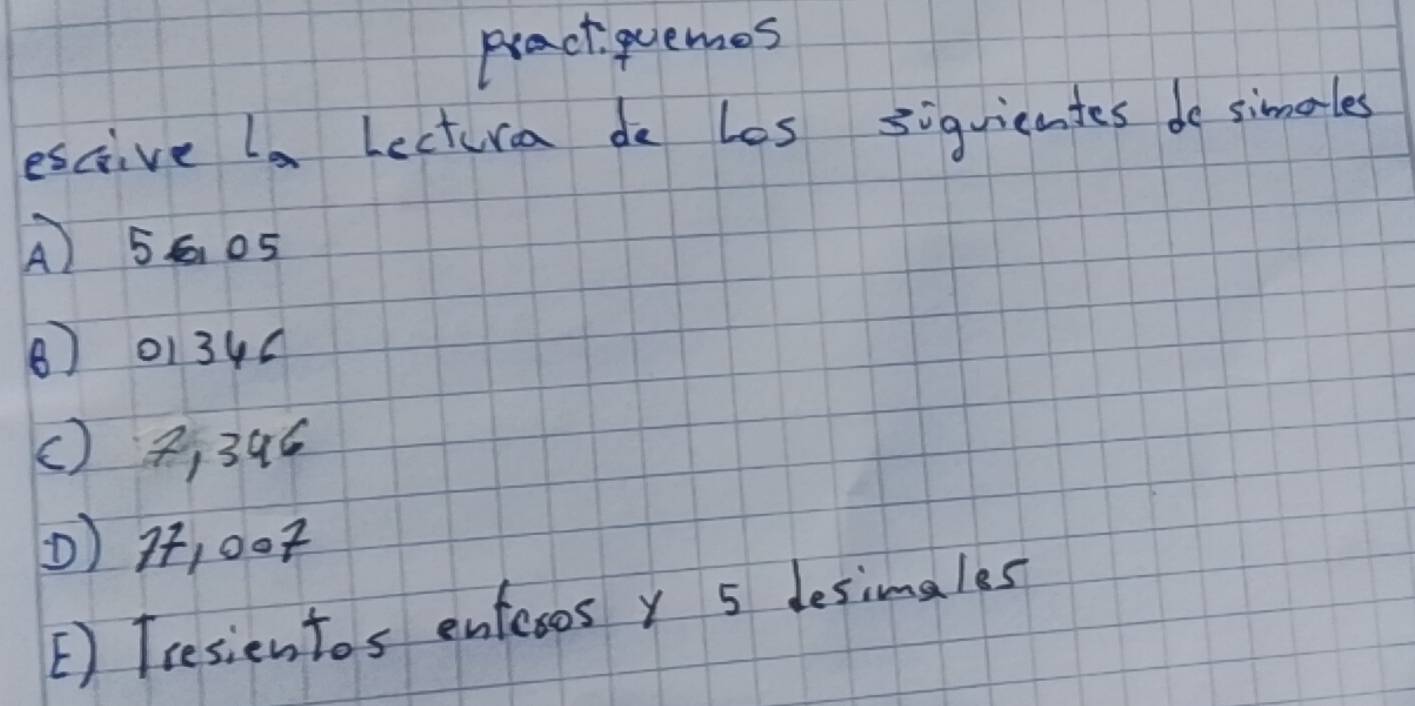 practiquemos
escrive la Lectura de Los siguientes de simales
A) 56,05
B) 0,346
C) 7,346
D) 17,007
E) Tresientos enteros y 5 desimales